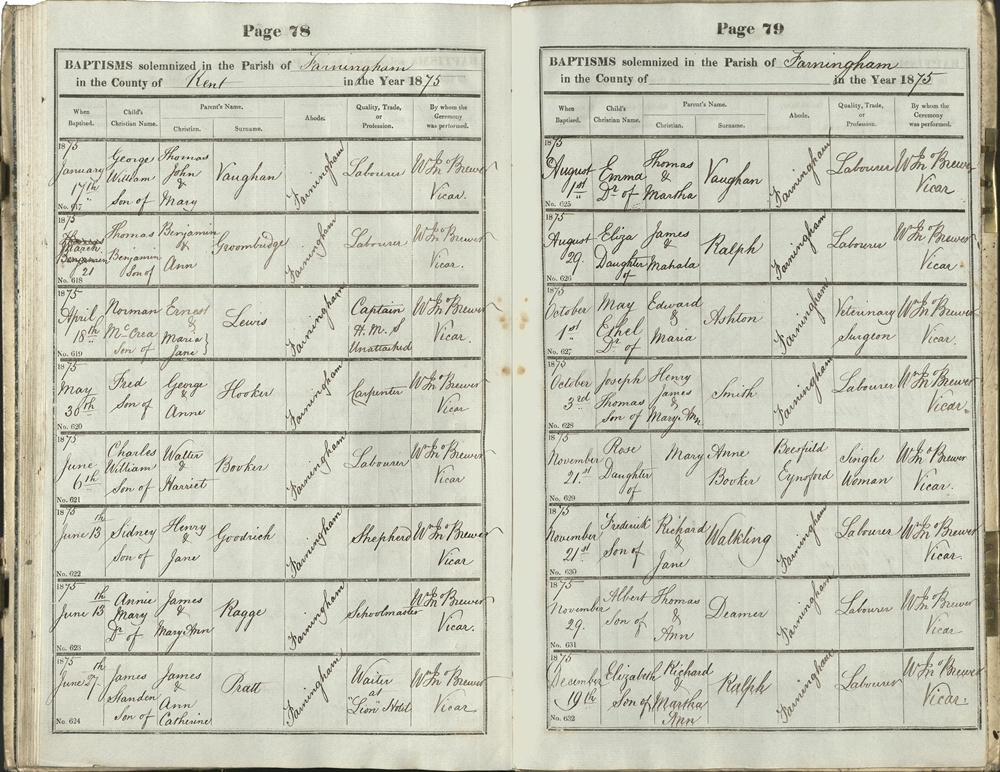 Page 78
BAPTISMS solemnized in the Parish of Farningham
in the County of Kent in the Year 1875
When Baptised.
Child's Christian Name.
Parent's Name.
Christian.
Surname.
Abode.
Quality, Trade, or Profession.
By whom the Ceremony was performed.
1875
January 17th
No. 617
George William Son of
Thomas John & Mary
Vaughan
Farningham
Labourer
Wm Jno Brewer Vicar.
1875
March
21
No. 618
Thomas Benjamin Son of
Benjamin & Ann
Groombridge
Farningham
Labourer
Wm Jno Brewer Vicar.
1875
April 18th
No. 619
Norman McCrea Son of
Ernest & Maria Jane
Lewis
Farningham
Captain H. M. S Unattached
Wm Jno Brewer Vicar.
1875
May 30th
No. 620
Fred Son of
George & Anne
Hooker
Farningham
Carpenter
Wm Jno Brewer Vicar
1875
June 6th
No. 621
Charles William Son of
Walter & Harriet
Booker
Farningham
Labourer
Wm Jno Brewer Vicar
1875
June 13th
No. 622
Sidney Son of
Henry & Jane
Goodrich
Farningham
Shepherd
Wm Jno Brewer Vicar
1875
June 13th
No. 623
Annie Mary Dr of
James & Mary Ann
Ragge
Farningham
Schoolmaster
Wm Jno Brewer Vicar.
1875
June 27th
No. 624
James Standen Son of
James & Ann Catherine
Pratt
Farningham
Waiter at "Lion" Hotel
Wm Jno Brewer Vicar
Page 79
BAPTISMS solemnized in the Parish of Farningham
in the County of in the Year 1875
When Baptised.
Child's Christian Name.
Parent's Name.
Christian.
Surname.
Abode.
Quality, Trade, or Profession.
By whom the Ceremony was performed.
1875
August 1st
No. 625
Emma Dr of
Thomas & Martha
Vaughan
Farningham
Labourer
Wm Jno Brewer Vicar
1875
August 29.
No. 626
Eliza Daughter of
James & Mahala
Ralph
Farningham
Labourer
Wm Jno Brewer Vicar
1875
October 1st
No. 627
May Ethel Dr of
Edward & Maria
Ashton
Farningham
Veterinary Surgeon
Wm Jno Brewer Vicar.
1875
October 3rd
No. 628
Joseph Thomas Son of
Henry James & Mary Ann
Smith
Farningham
Labourer
Wm Jno Brewer Vicar.
1875
November 21st
No. 629
Rose Daughter of
Mary Anne
Booker
Eynsford
Single Woman
Wm Jno Brewer Vicar.
1875
November 21st
No. 630
Frederick Son of
Richard & Jane
Walkling
Farningham
Labourer
Wm Jno Brewer Vicar.
1875
November 29.
No. 631
Albert Son of
Thomas & Ann
Deamer
Farningham
Labourer
Wm Jno Brewer Vicar
1875
December 19th
No. 632
Elizabeth Son of
Richard & Martha Ann
Ralph
Farningham
Labourer
Wm Jno Brewer Vicar.